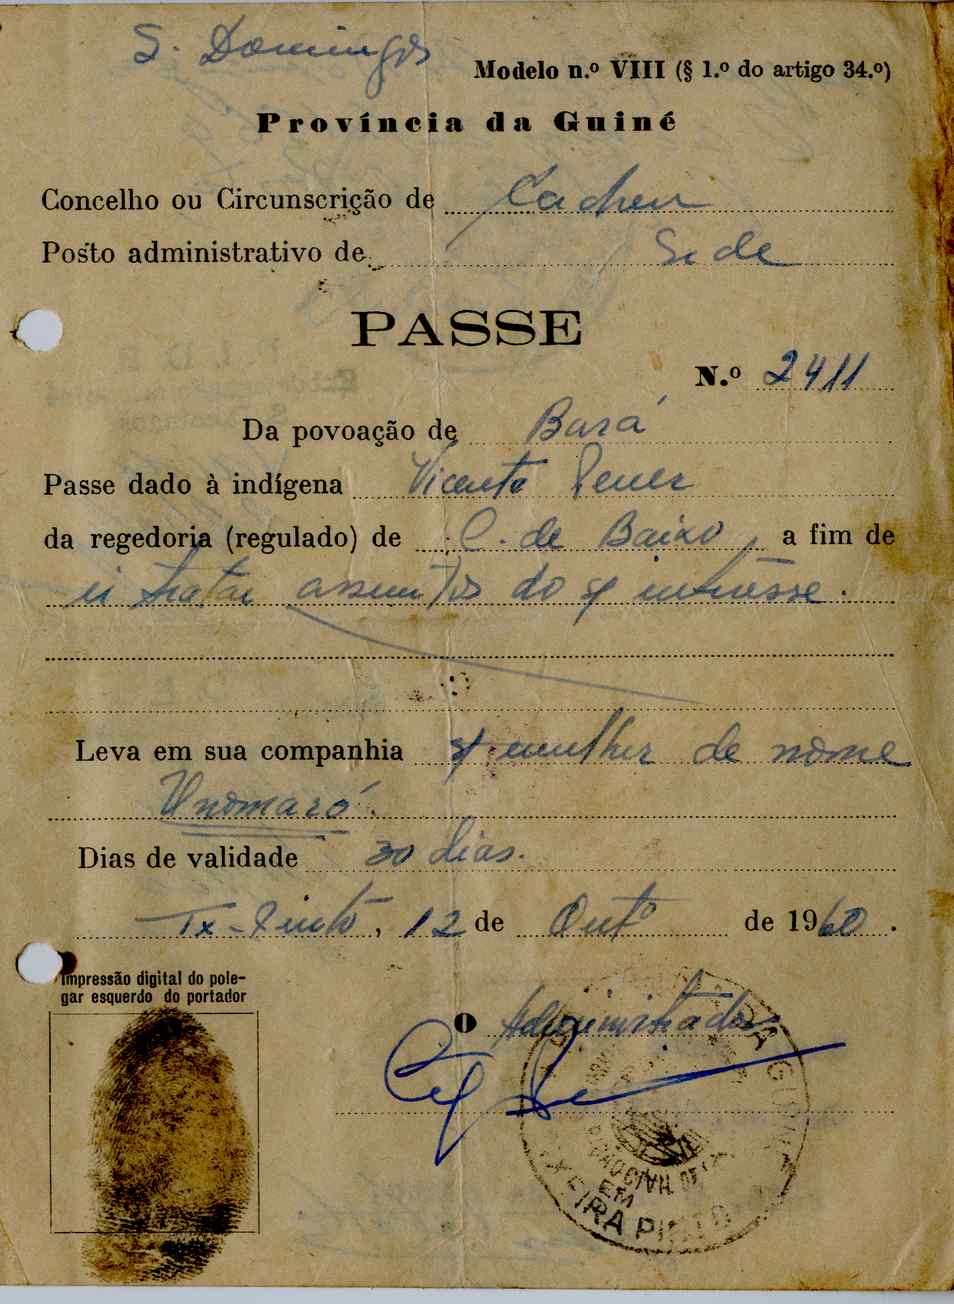 S. Domingos
Modelo n.º VIII (§ 1.º do artigo 34.º)
Província da Guiné
Concelho ou Circunscrição de Cacheu
Posto administrativo de Sede
PASSE
N.º 2411
Da povoação de Bará
Passe dado à indígena Vicente
da regedoria (regulado) de C. de Baixo, a fim de
ir tratar assuntos do s/ interesse.
Leva em sua companhia s/ mulher de nome
Unomaró.
Dias de validade 30 dias.
Tx-Pinto, 12 de Outº de 1960.
Impressão digital do pole-
gar esquerdo do portador
O Administrador
DA GUINÉ
EM
TEIXEIRA PINTO